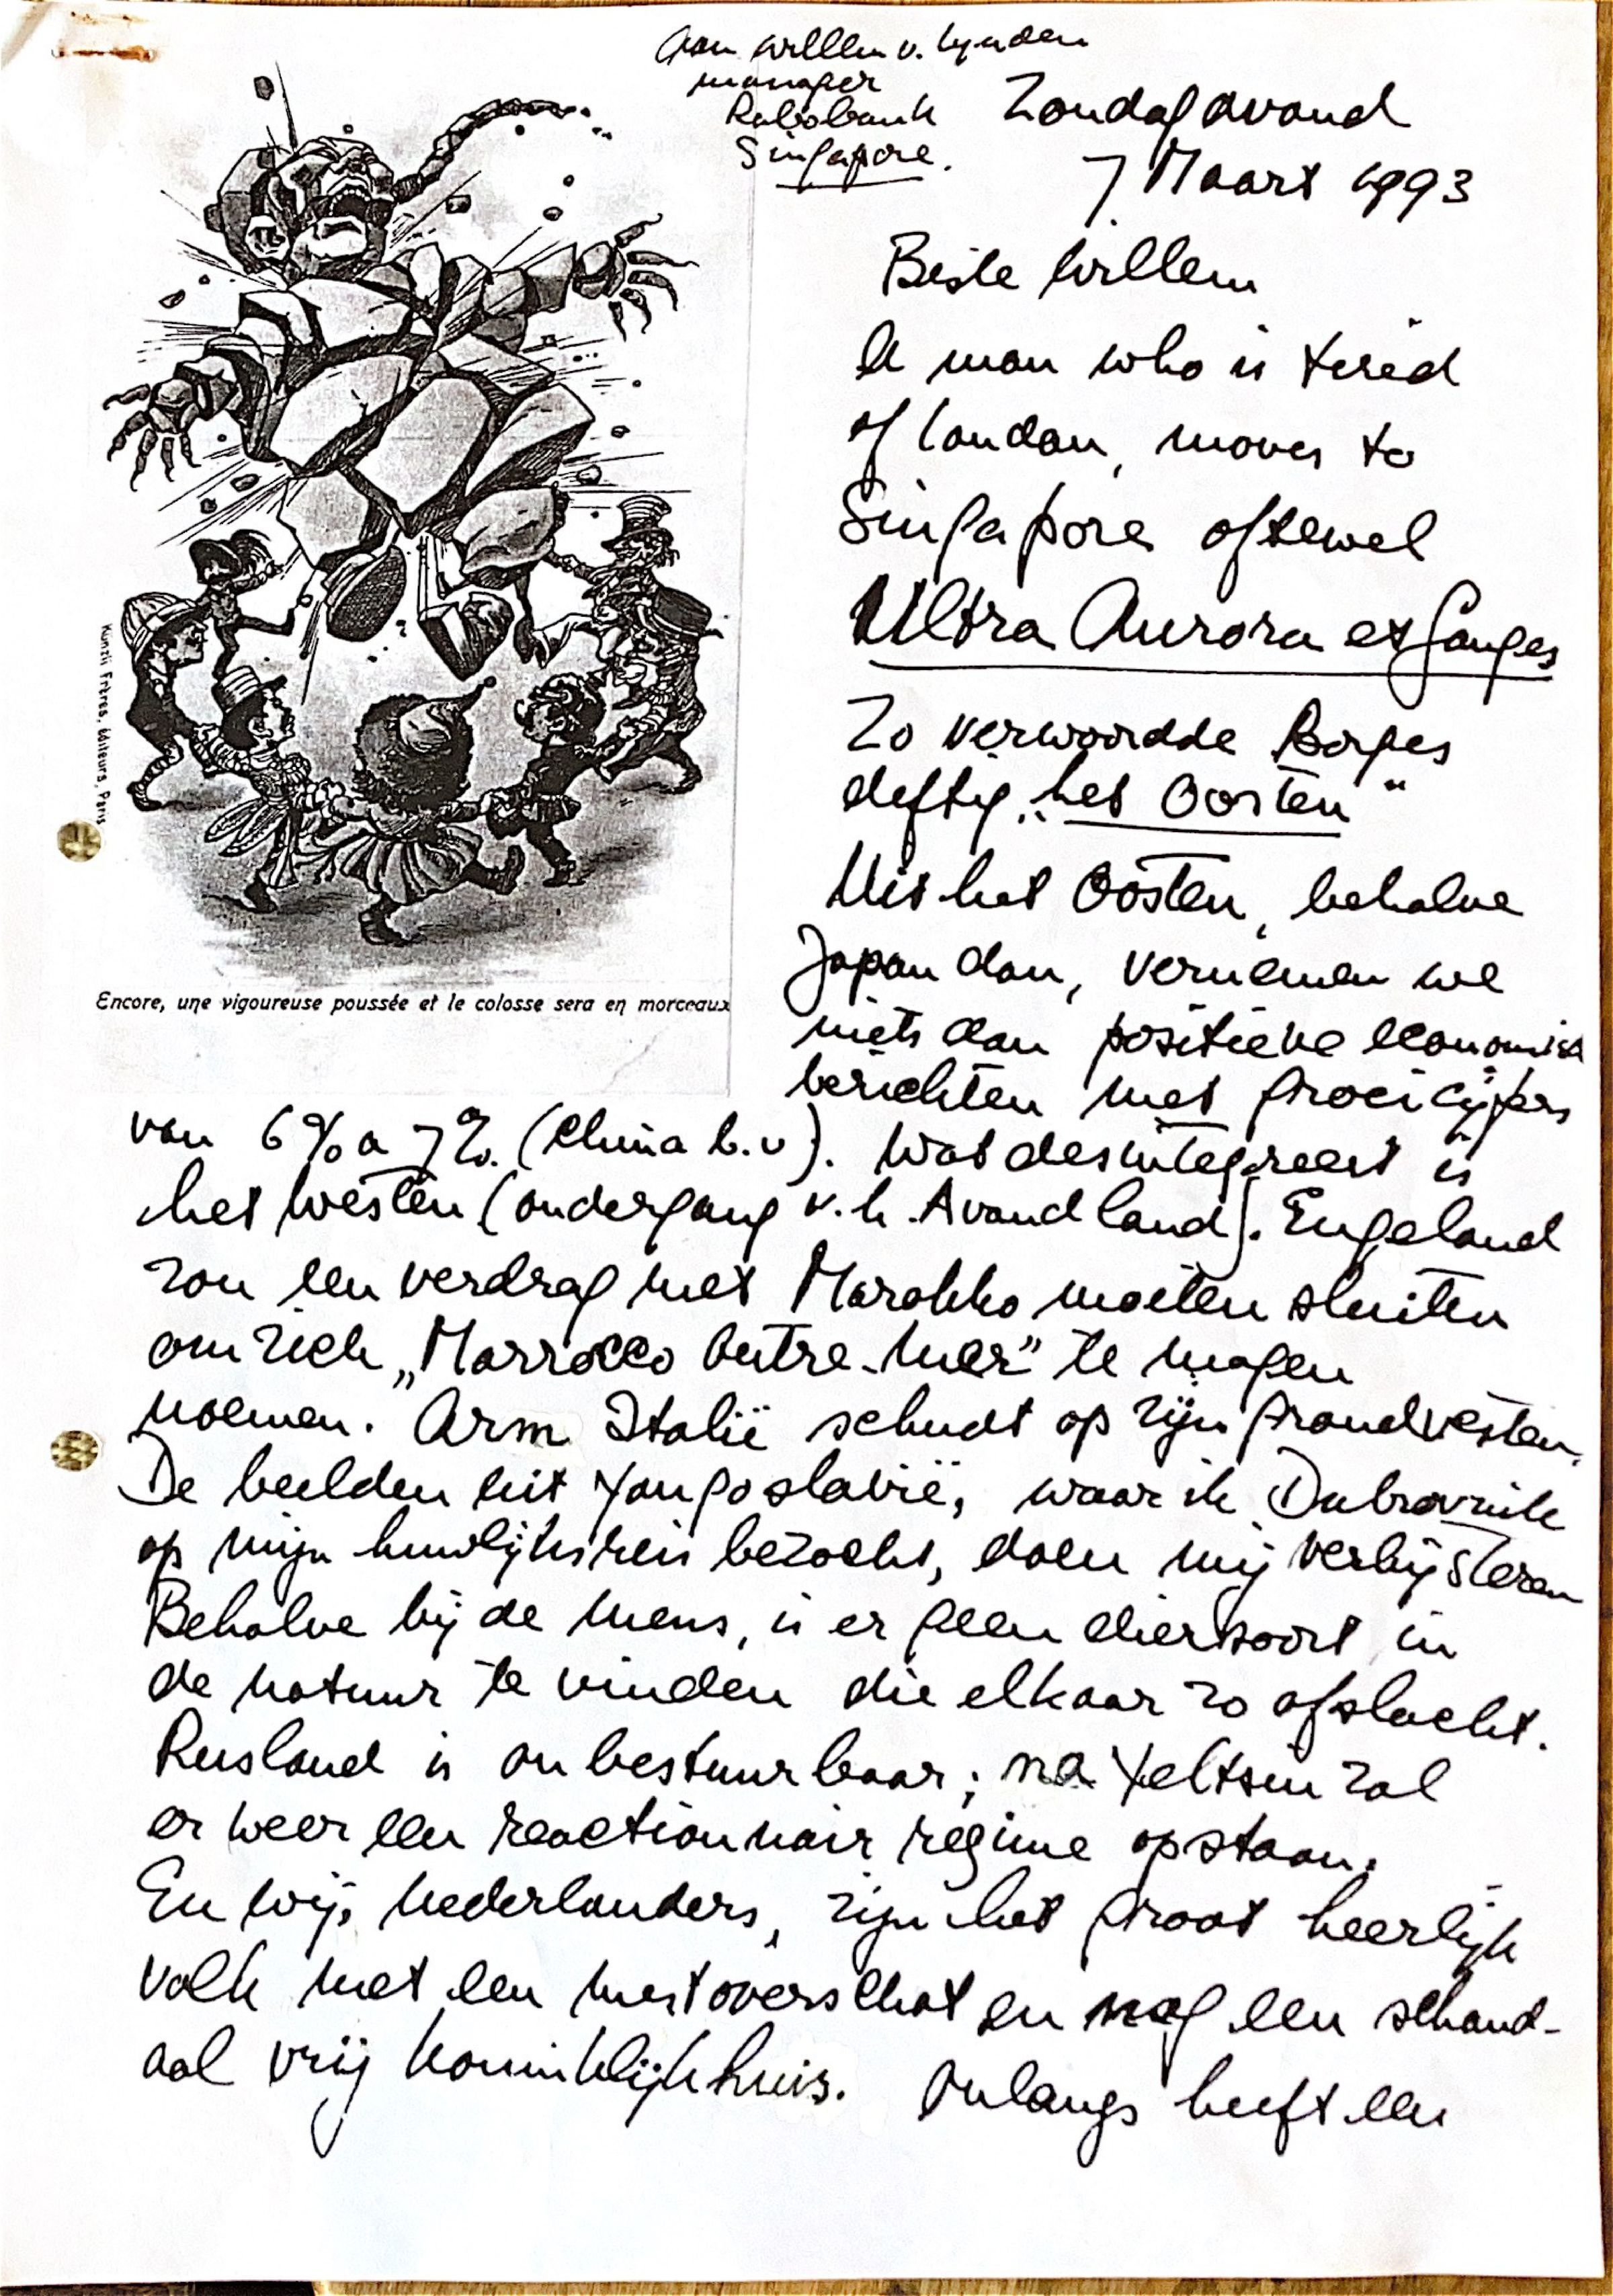 Aan Willem v. Lynden
manager
Rabobank
Singapore.
Zondagavond
7 Maart 1993
Beste Willem
A man who is tired
of London, moves to
Singapore oftewel
Ultra Aurora et Ganges
Zo verwoordde Borges
deftig „het Oosten"
Uit het Oosten, behalve
Japan dan, vernemen we
niets dan positieve economische
berichten met groeicijfers
van 6% a 7%. (China b.v). Wat desintegreert is
het Westen (ondergang v.h. Avondland). Engeland
zou een verdrag met Marokko moeten sluiten
om zich „Marrocco Outre-Mer" te mogen
noemen. Arm Italië schudt op zijn grondvesten.
De beelden uit Yougoslavië, waar ik Dubrovnik
op mijn huwlijksreis bezocht, doen mij verbijsteren
Behalve bij de mens, is er geen diersoort in
de natuur te vinden die elkaar zo afslacht.
Rusland is onbestuurbaar; na Yeltsin zal
er weer een reactionnair regime opstaan.
En wij, Nederlanders, zijn het groot heerlijk
volk met een mestoverschot en nog een schand-
aal vrij Koninklijk huis. Onlangs heeft een
Künzli Frères, éditeurs, Paris
Encore, une vigoureuse poussée et le colosse sera en morceaux